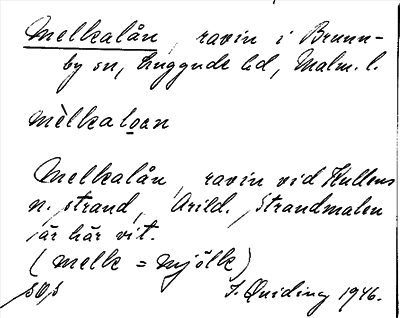 Melkalån, ravin i Brunn-
by sn, Luggude hd, Malm. l.
mèlkaloan
Melkalån, ravin vid Kullens
n. strand, Arild. Strandmalen
är här vit.
(melk = mjölk)
I. Quiding 1946.